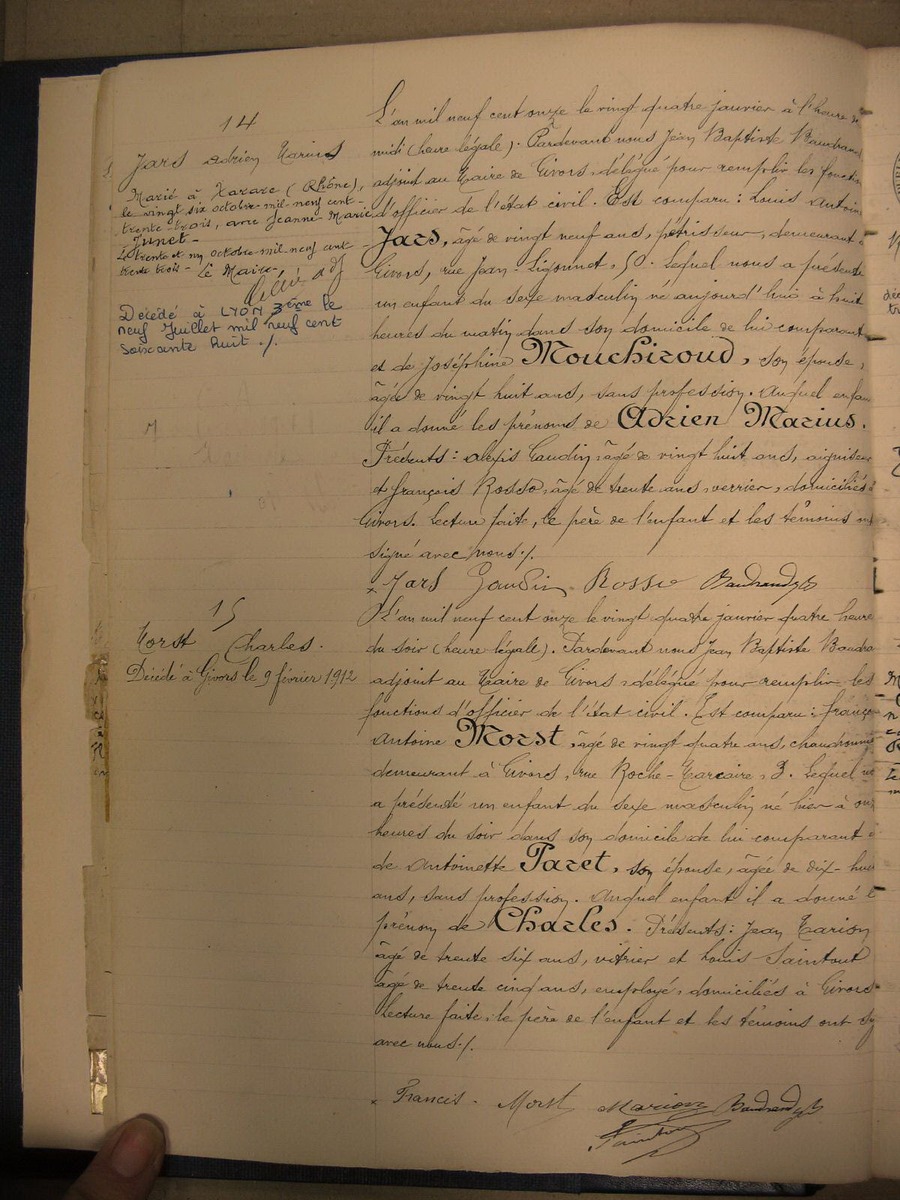 14
Jars Adrien Marius
Marié à Tarare (Rhône),
le vingt six octobre mil neuf cent
trente-trois, avec Jeanne-Marie
Junet-
Le trente et un octobre mil neuf cent
trente trois - Le Maire,
Décédé à LYON 3ème le
neuf Juillet mil neuf cent
soixante huit ./.
L'an mil neuf cent onze le vingt quatre janvier à l'heure de
midi (heure légale). Pardevant nous Jean Baptiste Baudrand
adjoint au Maire de Givors, délégué pour remplir les fonctions
d'officier de l'état civil. Est comparu: Louis Antoine
Jars, âgé de vingt neuf ans, pétrisseur, demeurant à
Givors, rue Jean-Ligonnet, 50. Lequel nous a présenté
un enfant du sexe masculin né aujourd'hui à huit
heures du matin dans son domicile de lui comparant
et de Joséphine Mouchiroud, son épouse,
âgée de vingt huit ans, sans profession. Auquel enfant
il a donné les prénoms de Adrien Marius.
Présents: Alexis Gaudin, âgé de vingt huit ans, aiguiseur
et François Rosso, âgé de trente ans, verrier, domiciliés à
Givors. Lecture faite, le père de l'enfant et les témoins ont
signé avec nous ./.
Jars Gaudin Rosso Baudrand adj
15
Morst Charles.
Décédé à Givors le 9 février 1912
L'an mil neuf cent onze le vingt quatre janvier quatre heures
du soir (heure légale). Pardevant nous Jean Baptiste Baudra
adjoint au Maire de Givors, délégué pour remplir les
fonctions d'officier de l'état civil. Est comparu: Franço
Antoine Morst, âgé de vingt quatre ans, chaudronnie
demeurant à Givors, rue Roche-Marcaire, 3. Lequel no
a présenté un enfant du sexe masculin né hier à onz
heures du soir dans son domicile de lui comparant e
de Antoinette Paret, son épouse, âgée de dix-huit
ans, sans profession. Auquel enfant il a donné l
prénom de Charles. Présents: Jean Marion
âgé de trente six ans, vitrier et Louis Saintout
âgé de trente cinq ans, employé, domiciliés à Givors
Lecture faite, le père de l'enfant et les témoins ont sig
avec nous ./.
Francis - Morst Marion Baudrand adj